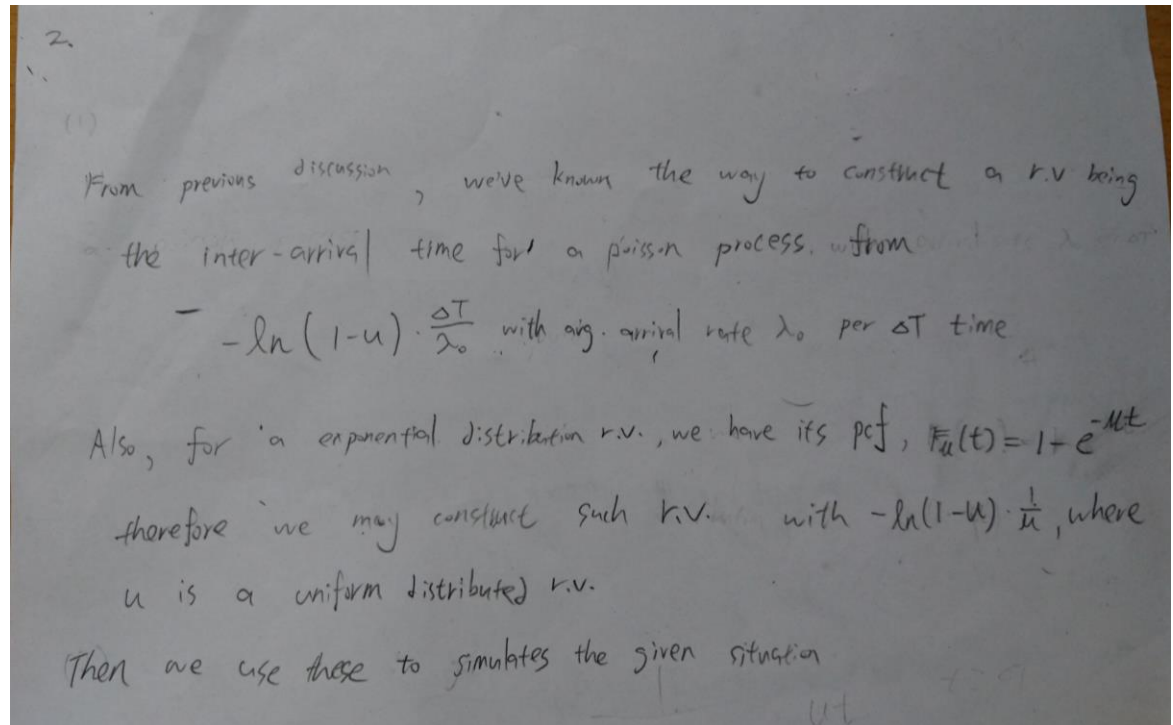 2.
(1)
From previous discussion, we've known the way to construct a r.v being
the inter-arrival time for a poisson process. from
-ln(1-u)·ΔT/λ₀ with avg. arrival rate λ₀ per ΔT time
Also, for a exponential distribution r.v., we have its pcf, Fμ(t) = 1-e^-μt
therefore we may construct such r.v. with -ln(1-u)·1/μ, where
u is a uniform distributed r.v.
Then we use these to simulates the given situation